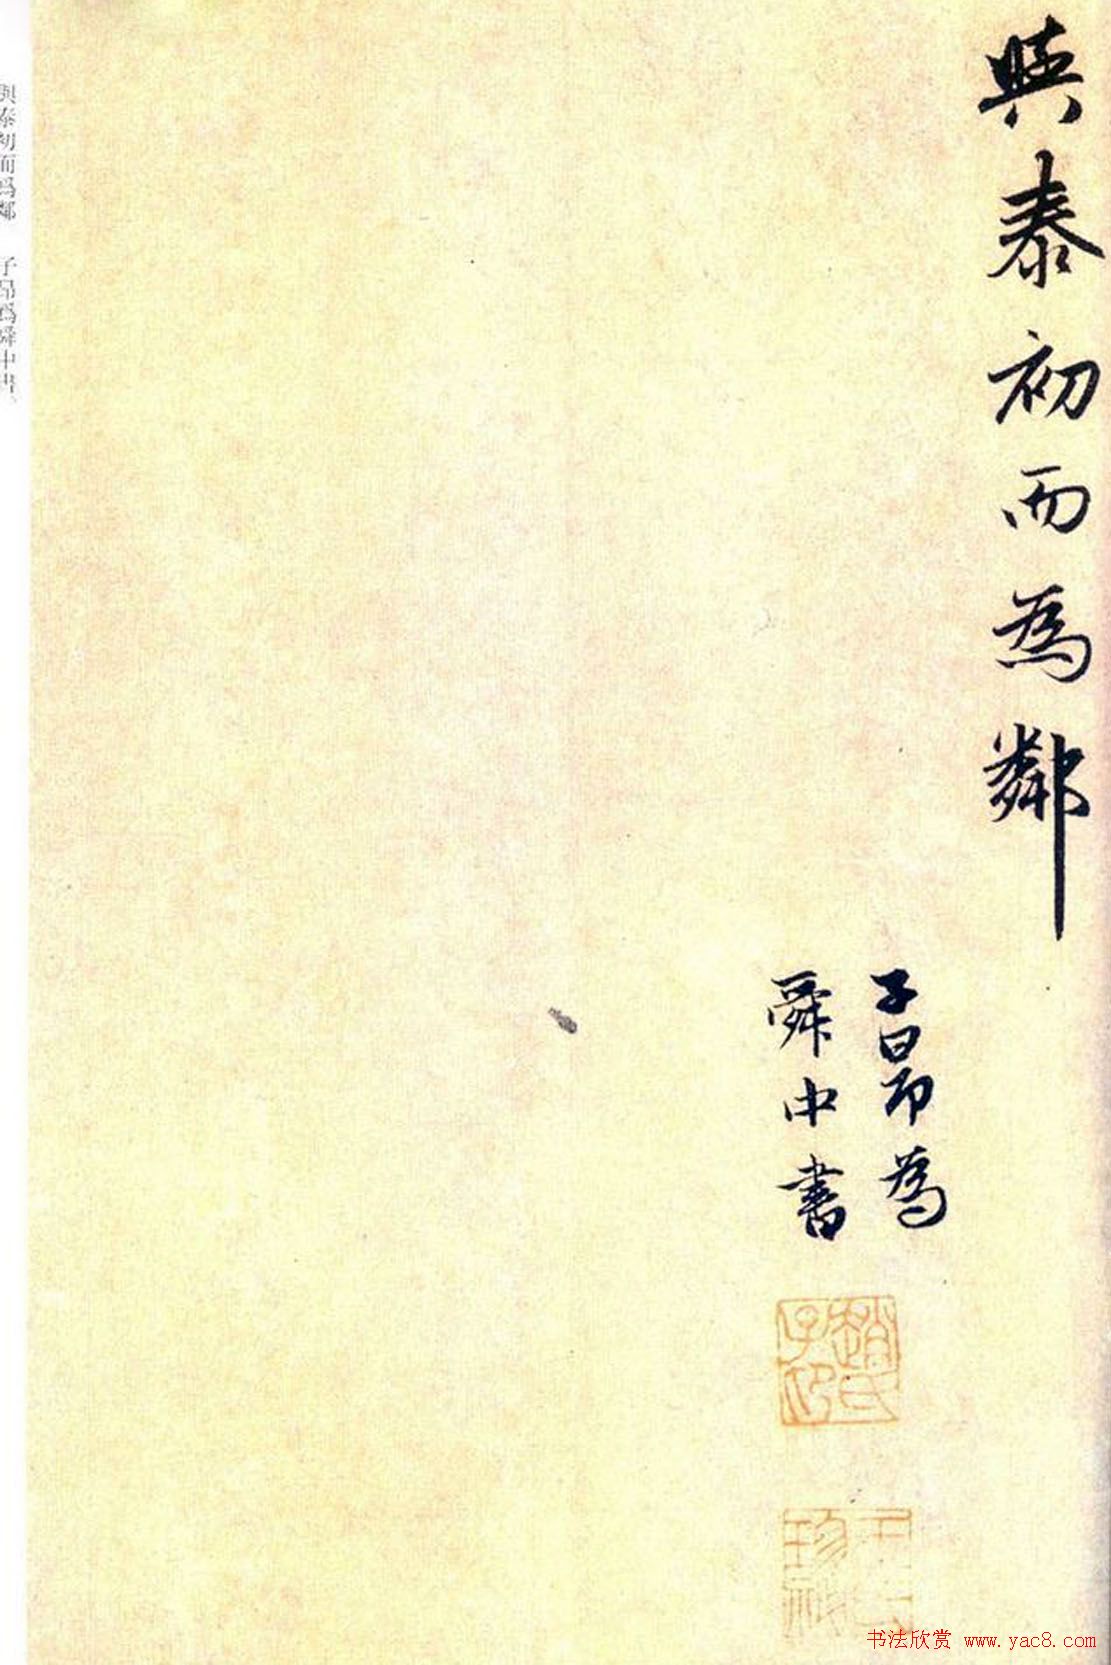 與泰初而為鄰
子昂為
舜中書
趙氏子昂
與泰初而爲鄰 子昂爲舜中書。
书法欣赏 www.yac8.com